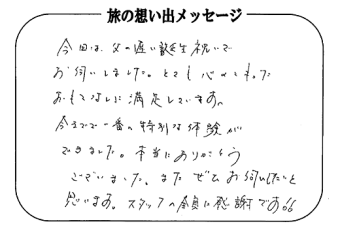 旅の想い出メッセージ
今回は、父の遅い誕生祝いで
お伺いしました。とても心のこもった
おもてなしに満足しています。
今までで一番の特別な体験が
できました。本当にありがとう
ございました。また ぜひお伺いしたいと
思います。スタッフの全員に感謝です。